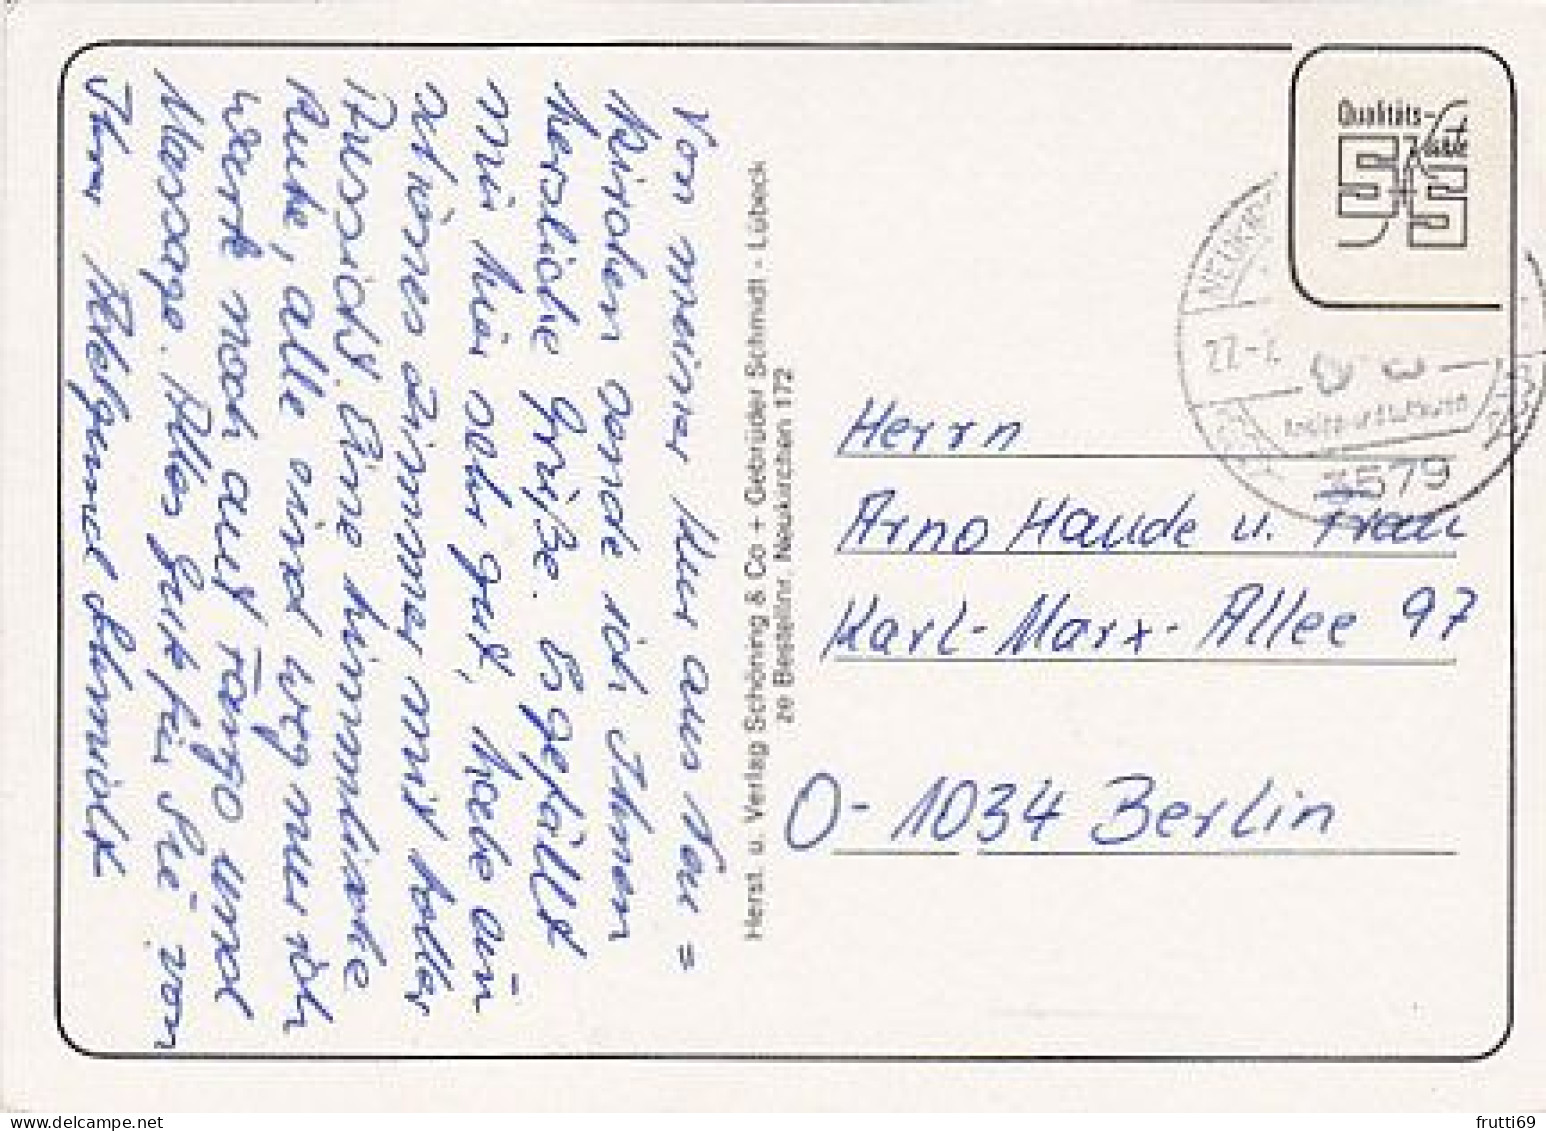 Von meiner Kur aus Neu=
kirchen sende ich Ihnen
herzliche Grüße. Es gefällt
mir hier sehr gut, habe ein
schönes Zimmer mit toller
Aussicht. Eine himmlische
Ruhe, alle sind weg nur ich
warte noch auf Fango und
Massage. Alles Gute für Sie von
Ihrer Schmidt
Herst. u. Verlag Schöning & Co + Gebrüder Schmidt - Lübeck
ze Bestellnr. Neukirchen 172
Qualitäts-
Karte
S+S
NEUKIR
22-
3579
Herrn
Arno Haude u. Frau
Karl-Marx-Allee 97
O-1034 Berlin
frutti69